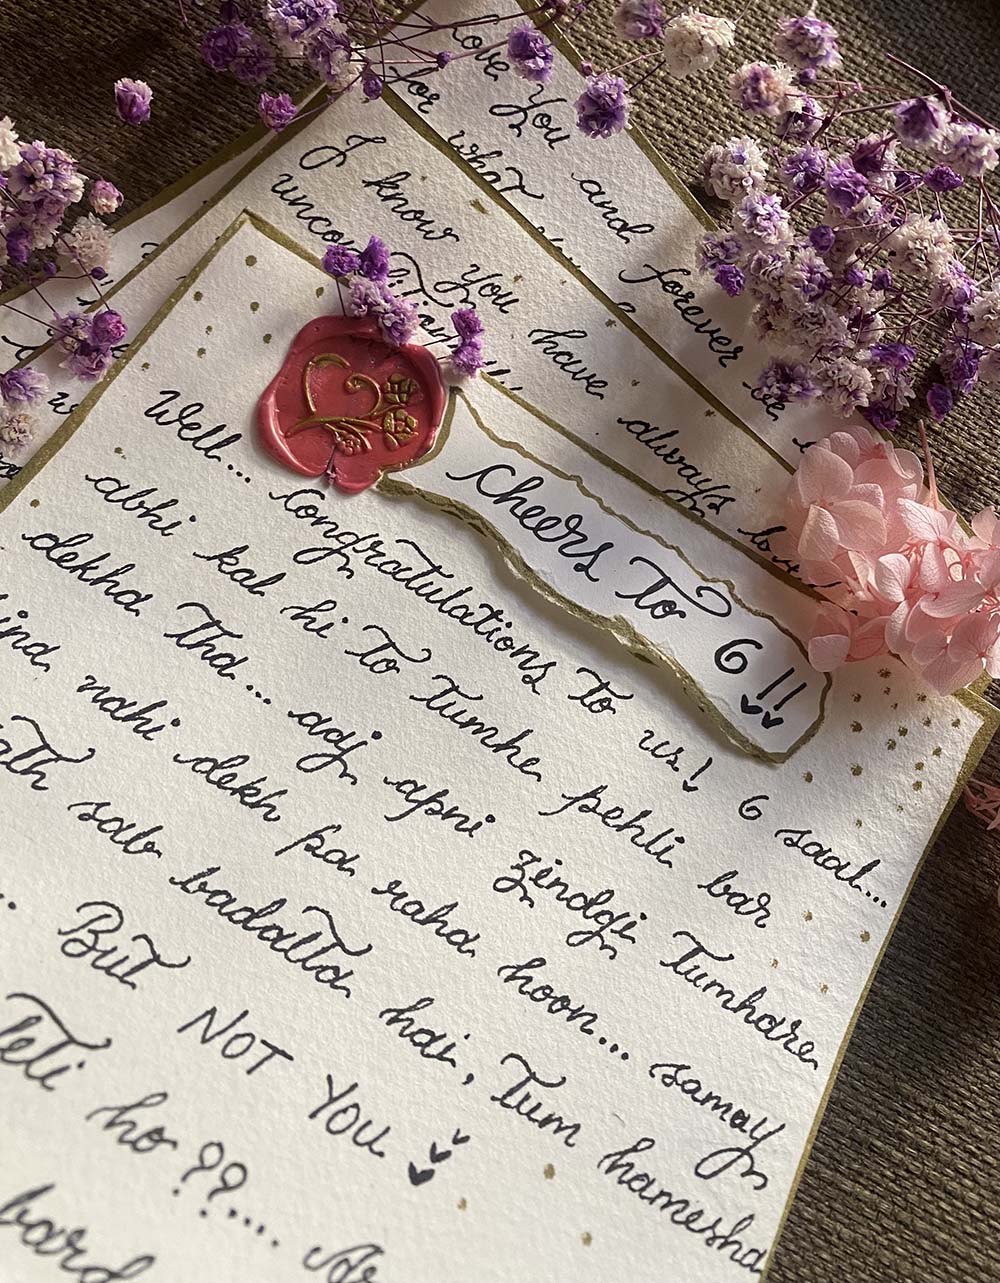 Love You
for what
and forever
I know You have always
Cheers To 6 !!
Well... Congratulations To us! 6 saal...
abhi kal hi To Tumhe pehli bar
dekha Tha... aaj apni zindgi Tumhare
nahi dekh pa raha hoon... samay
sab badalTa hai, Tum hamesha
... BuT NOT YOU
leTi ho ??...